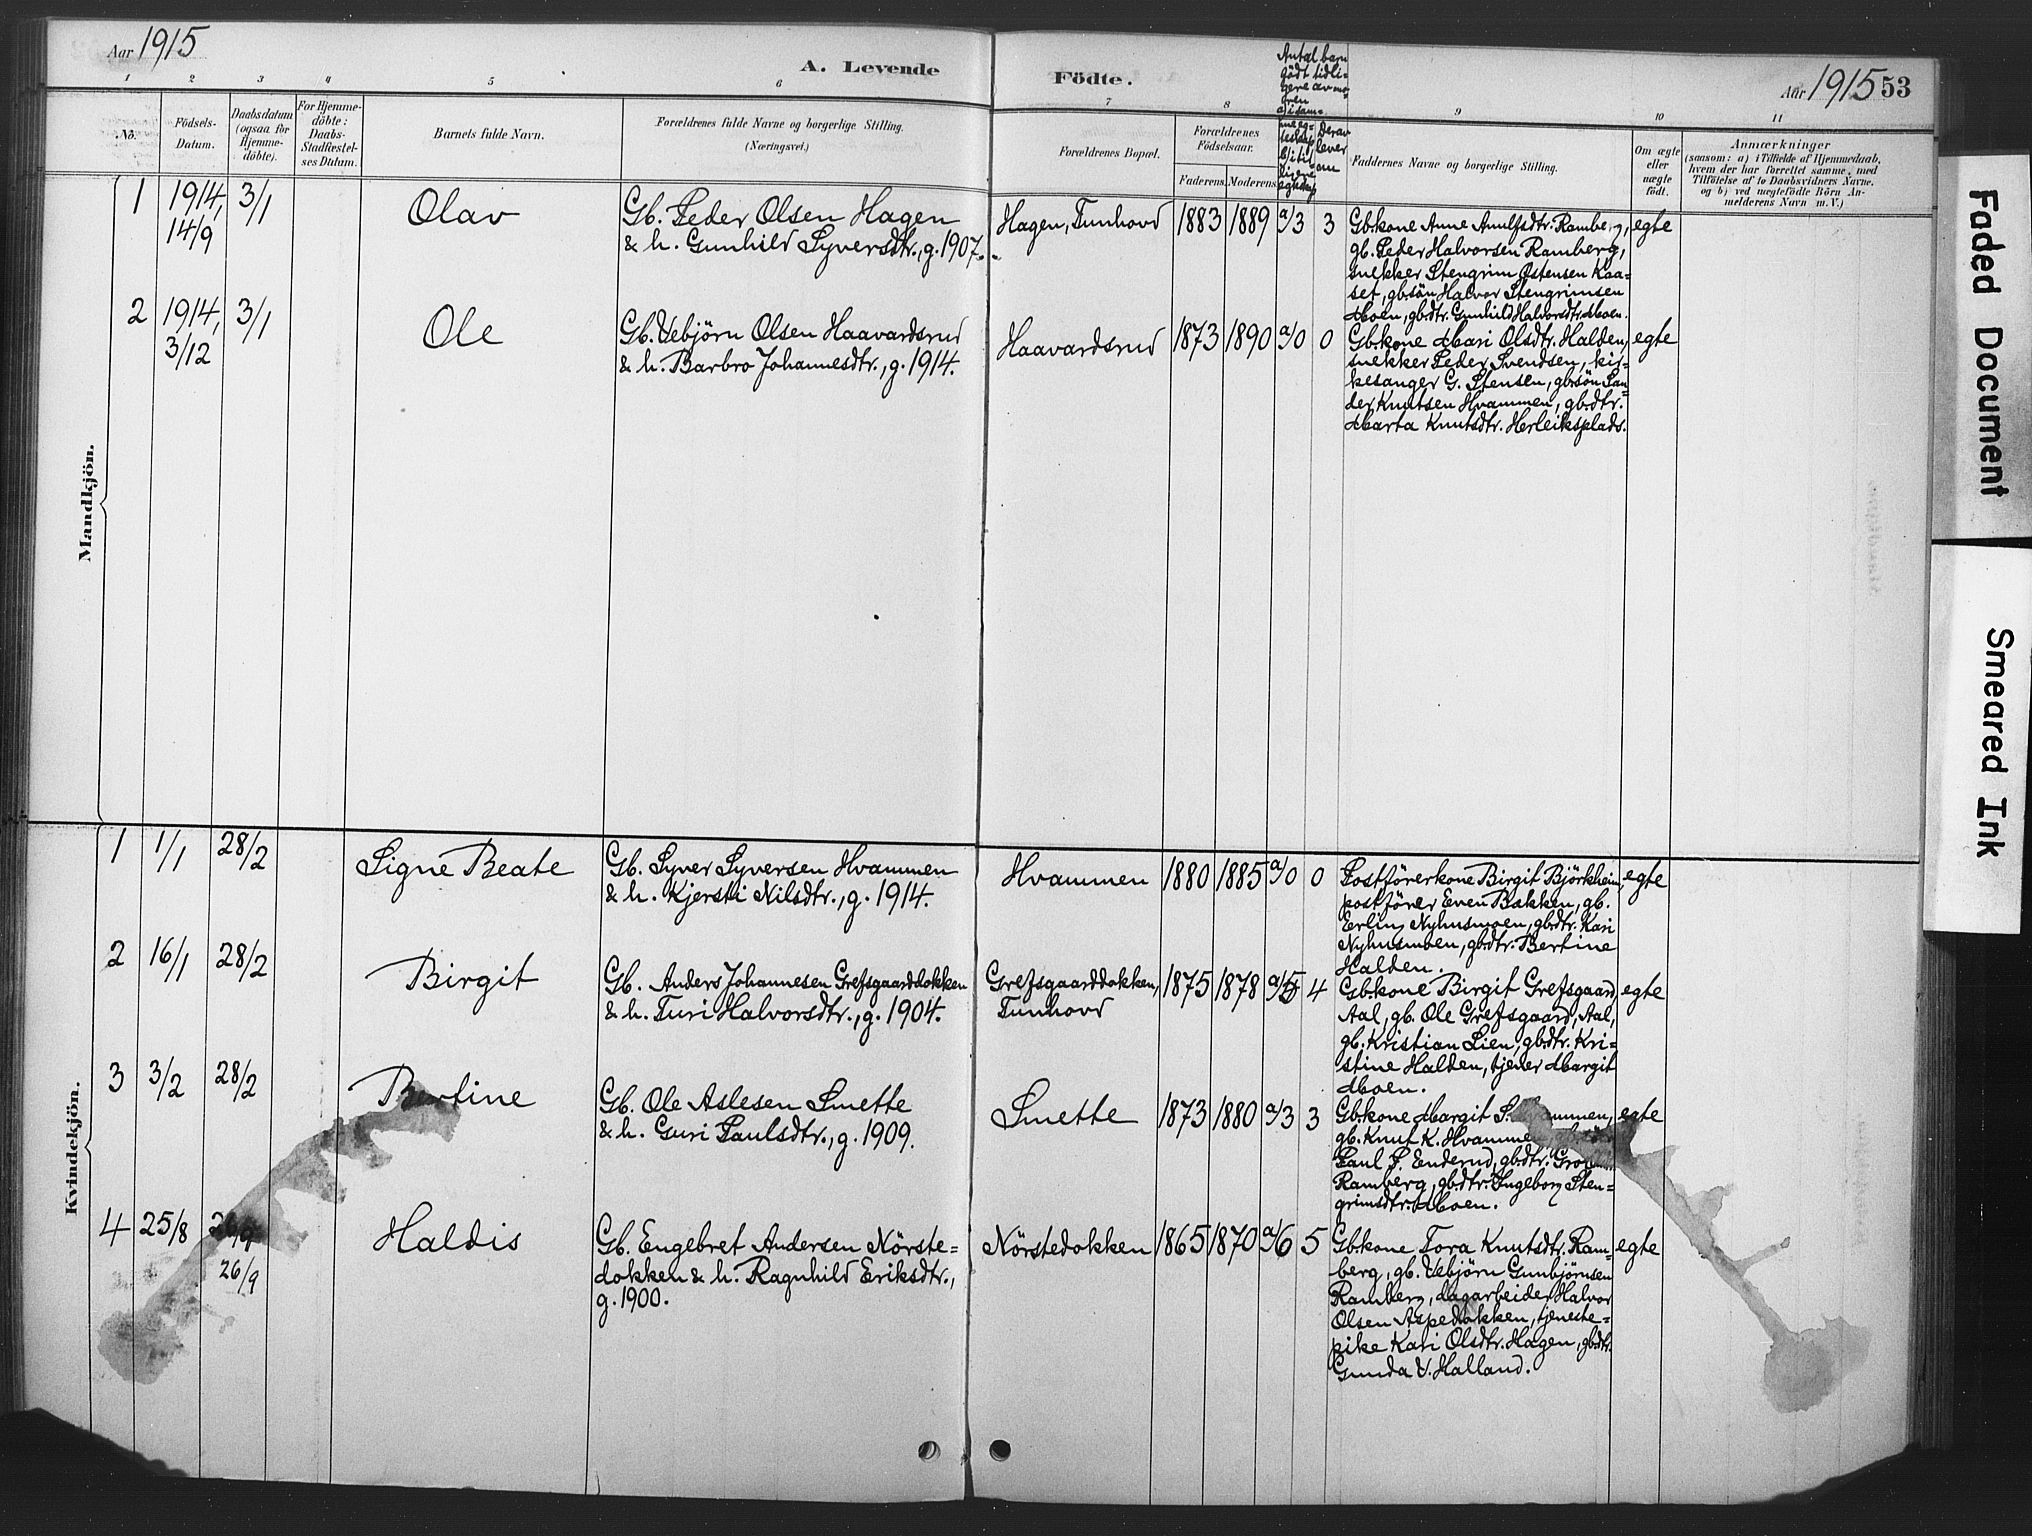 Aar 1915
A. Levende
Födte.
Aar 1915 53
Antal barn
födt tidli-
gere av mo-
ren
a) i sam-
me eg-
teskap
b) i tid-
ligere
egteskap
Derav
lever
om
1 2 3 4 5 6 7 8 9 10 11
No.
Födsels-
Datum.
Daabsdatum
(ogsaa för
Hjemme-
döbte).
For Hjemme-
döbte:
Daabs-
Stadfæstel-
ses Datum.
Barnets fulde Navn.
Forældrenes fulde Navne og borgerlige Stilling.
(Næringsvei.)
Forældrenes Bopæl.
Forældrenes
Födselsaar.
Faderens. Moderens.
Faddernes Navne og borgerlige Stilling.
Om ægte
eller
uægte
födt.
Anmærkninger
(saasom: a) i Tilfælde af Hjemmedaab,
hvem der har forrettet samme, med
Tilföielse af to Daabsvidners Navne,
og b) ved uægtefödte Börn An-
melderens Navn m. V.)
Mandkjön.
1 1914, 3/1 Olav
14/9
Gb. Peder Olsen Hagen
& h. Gunhild Syversdtr., g. 1907.
Hagen, Tunhovd 1883 1889 a/3 3
Gb.kone Anne Arnulfsdtr. Ramberg,
gb. Peder Halvorsen Ramberg,
snekker Stengrim Østensen Kaa=
set, gb.sön Halvor Stengrimsen
Moen, gb.dtr. Gunhild Halvorsdtr. Moen.
egte
2 1914, 3/1 Ole
3/12
Gb. Vebjörn Olsen Haavardsrud
& h. Barbro Johannesdtr., g. 1914.
Haavardsrud 1873 1890 a/0 0
Gb.kone Mari Olsdtr. Halden,
snekker Peder Svendsen, kir=
kesanger G. Stensen, gb.sön San=
der Knutsen Hvammen, gb.dtr.
Marta Knutsdtr. Herleiksplads.
egte
Kvindekjön.
1 1/1 28/2 Signe Beate
Gb. Syver Syversen Hvammen
& h. Kjersti Nilsdtr., g. 1914.
Hvammen 1880 1885 a/0 0
Postförerkone Birgit Björkheim,
postförer Even Bakken, gb.
Erling Nyhusmoen, gb.dtr. Kari
Nyhusmoen, gb.dtr. Bertine
Halden.
egte
2 16/1 28/2 Birgit
Gb. Anders Johannesen Grefsgaarddokken
& h. Turi Halvorsdtr., g. 1904.
Grefsgaarddokken,
Tunhovd
1875 1878 a/5 4
Gb.kone Birgit Grefsgaard,
Aal, gb. Ole Grefsgaard, Aal,
gb. Kristian Lien, gb.dtr. Kri=
stine Halden, tjener Margit
Moen.
egte
3 3/2 28/2 Bertine
Gb. Ole Aslesen Smette
& h. Guri Paulsdtr., g. 1909.
Smette 1873 1880 a/3 3
Gb.kone Margit S. Hvammen,
gb. Knut K. Hvammen,
Paul P. Enderud, gb.dtr. Gro
Ramberg, gb.dtr. Ingeborg Sten=
grimsdtr. Moen.
egte
4 25/8 26/9 Haldis
26/9
Gb. Engebret Andersen Nörste=
dokken & h. Ragnhild Eriksdtr.,
g. 1900.
Nörstedokken 1865 1870 a/6 5
Gb.kone Tora Knutsdtr. Ram=
berg, gb. Vebjörn Gunbjörnsen
Ramberg, dagarbeider Halvor
Olsen Aspedokken, tjeneste=
pike Kari Olsdtr. Hagen, gb.dtr.
Gunda V. Halland.
egte
Faded Document
Smeared Ink